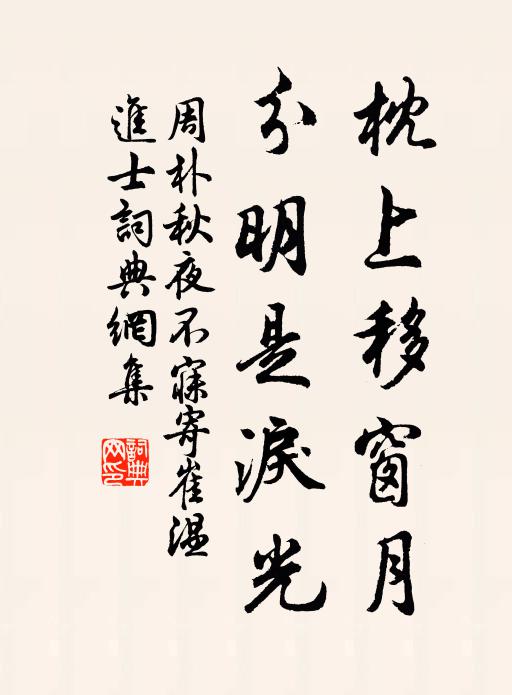 枕上移窗月
分明是淚光
周朴秋夜不寐寄崔温
進士詞典網集
詞典網印